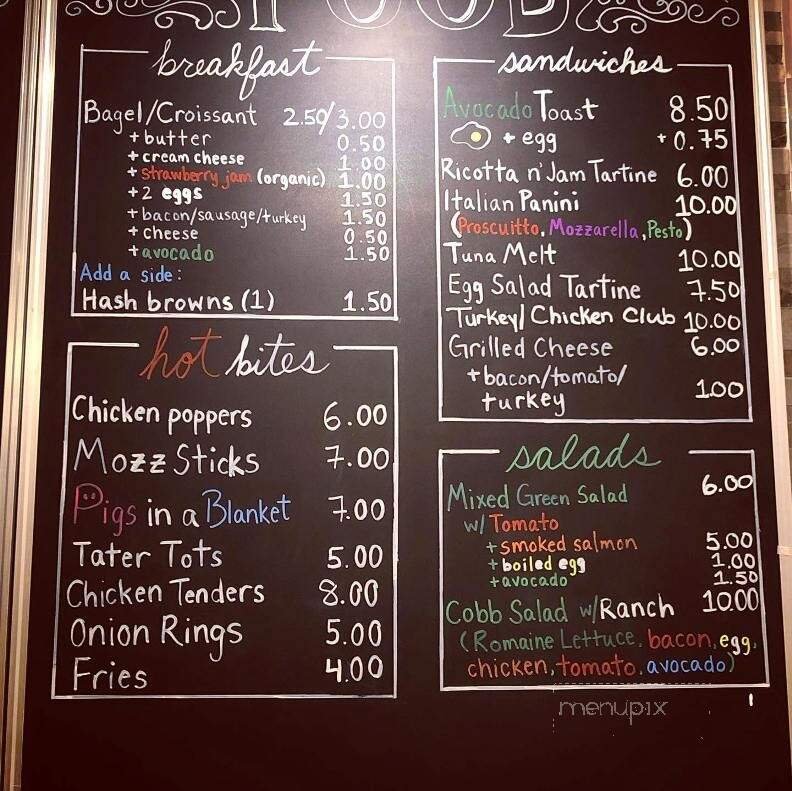 FOOD
breakfast
Bagel/Croissant 2.50/3.00
+butter 0.50
+cream cheese 1.00
+strawberry jam (organic) 1.00
+2 eggs 1.50
+bacon/sausage/turkey 1.50
+cheese 0.50
+avocado 1.50
Add a side:
Hash browns (1) 1.50
hot bites
Chicken poppers 6.00
Mozz Sticks 7.00
Pigs in a Blanket 7.00
Tater Tots 5.00
Chicken Tenders 8.00
Onion Rings 5.00
Fries 4.00
sandwiches
Avocado Toast 8.50
+ egg +0.75
Ricotta n' Jam Tartine 6.00
Italian Panini 10.00
(Proscuitto, Mozzarella, Pesto)
Tuna Melt 10.00
Egg Salad Tartine 7.50
Turkey/Chicken Club 10.00
Grilled Cheese 6.00
+bacon/tomato/
turkey 1.00
salads
Mixed Green Salad 6.00
w/ Tomato
+smoked salmon 5.00
+boiled egg 1.00
+avocado 1.50
Cobb Salad w/Ranch 10.00
(Romaine Lettuce, bacon, egg,
chicken, tomato, avocado)
menupix